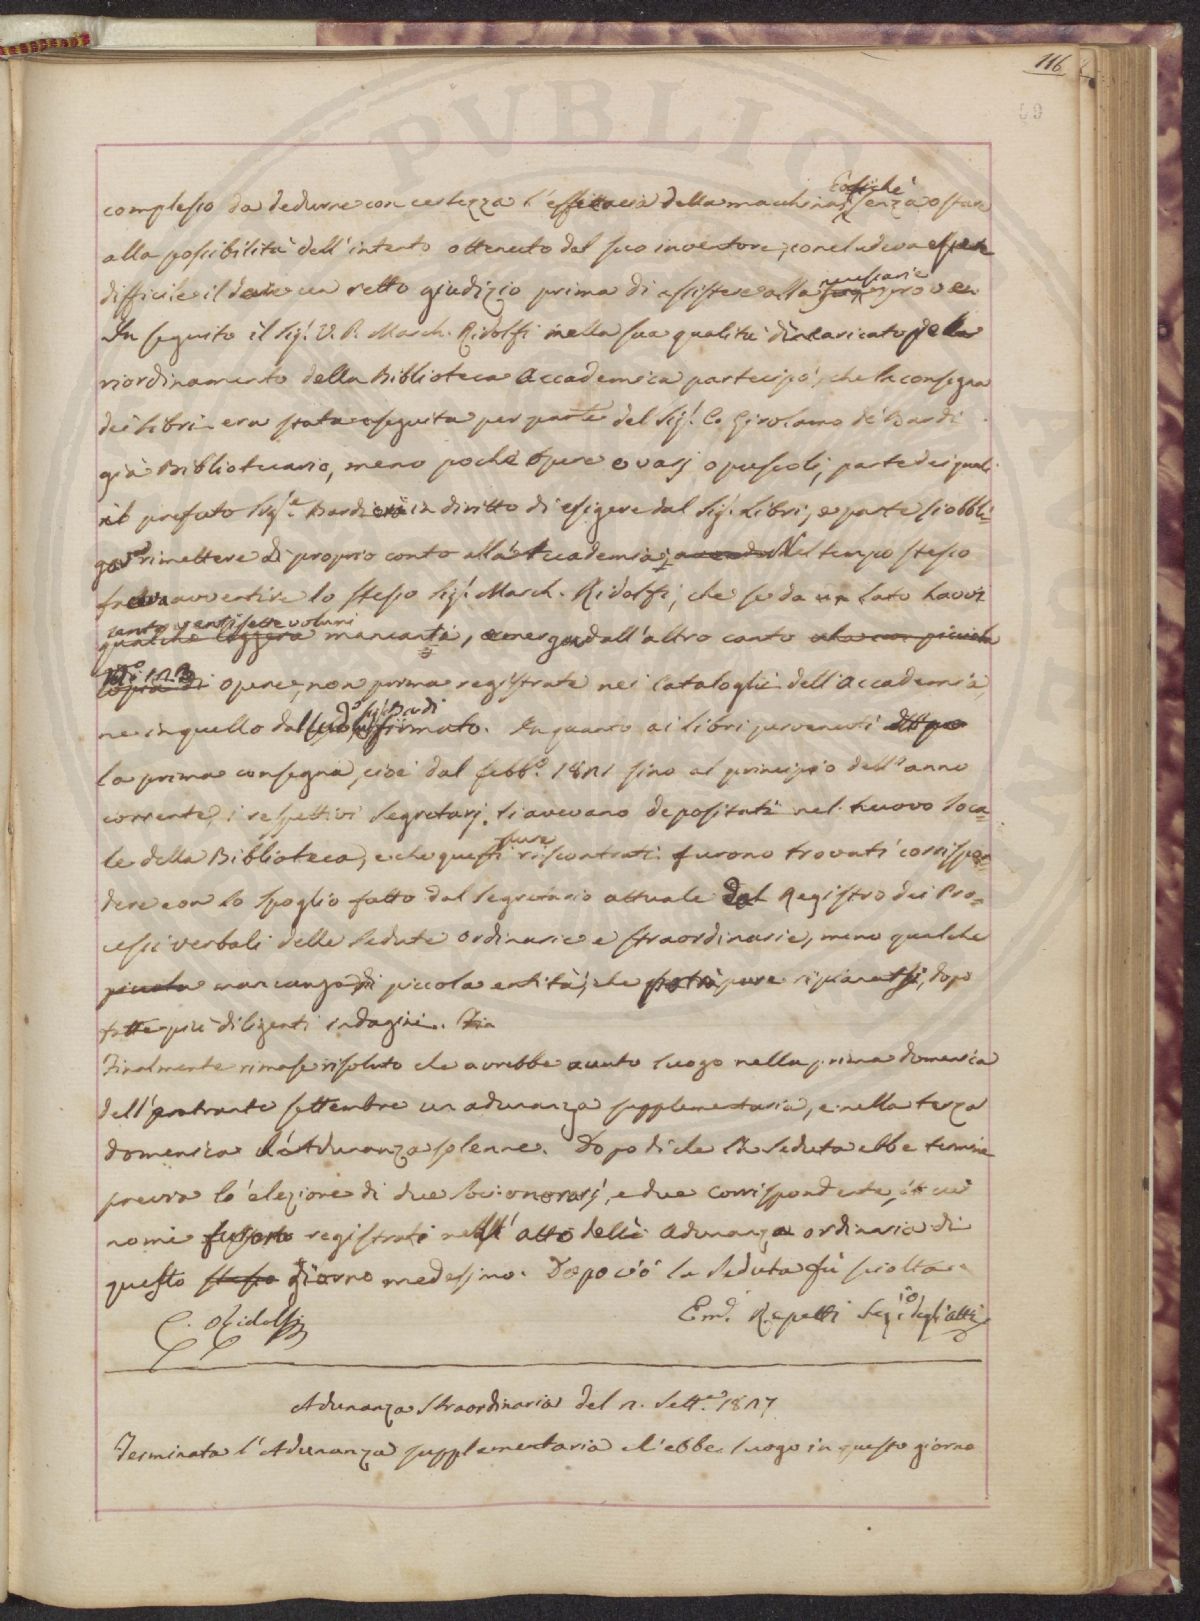 116
69
complesso da dedurne con certezza l'efficacia della macchina; Cosichè senza ostare
alla possibilità dell'intento ottenuto dal suo inventore, concludeva essere
difficile il dare un retto giudizio prima di assistere alla necessarie prove.
In seguito il Sig.r V. P. March. Ridolfi nella sua qualità d'incaricato del
riordinamento della Biblioteca Accademica partecipò, che la consegna
dei libri era stata eseguita per parte del Sig.r C. Girolamo de' Bardi
già Bibliotecario, meno poche Opere o varj opuscoli, parte dei quali
il prefato Sig.e Bardi era in diritto di esigere dal Sig.r Libri, e parte si obbli=
gava rimettere di proprio conto all'Accademia; Nel tempo stesso
faceva avvertire lo stesso Sig.r March. Ridolfi, che se da un lato havvi
cento ventisette volumi
qualche leggera mancanti, emerge dall'altro canto
copia di opere non prima registrate nei Cataloghi dell'Accademia,
ne in quello dal Sig. Bardi firmato. In quanto ai libri pervenuti
la prima consegna, cioè dal febb.o 1821 sino al principio dell'anno
corrente, i respettivi Segretarj li avevano depositati nel nuovo loca=
le della Biblioteca, e che questi pure riscontrati furono trovati corrispon=
dere con lo spoglio fatto dal Segretario attuale del Registro dei Pro=
cessi verbali delle Sedute ordinarie e straordinarie, meno qualche
piccola mancanza di piccola entità, che potrà pure ripianarsi, dopo
fatte più diligenti indagini. Fin
Finalmente rimase risoluto che avrebbe avuto luogo nella prima domenica
dell'entrante settembre un adunanza supplementaria, e nella terza
domenica l'Adunanza solenne. Dopo di che la Seduta ebbe termine
previa l'elezione di due Soci onorarj, e due corrispondenti, i cui
nomi furono registrati nell'atto della Adunanza ordinaria di
questo stesso giorno medesimo. Dopo ciò la Seduta fù sciolta
C. Ridolfi
Em. Repetti Seg.io degli atti
Adunanza Straordinaria del 2. Sett.e 1827
Terminata l'Adunanza supplementaria ch'ebbe luogo in questo giorno